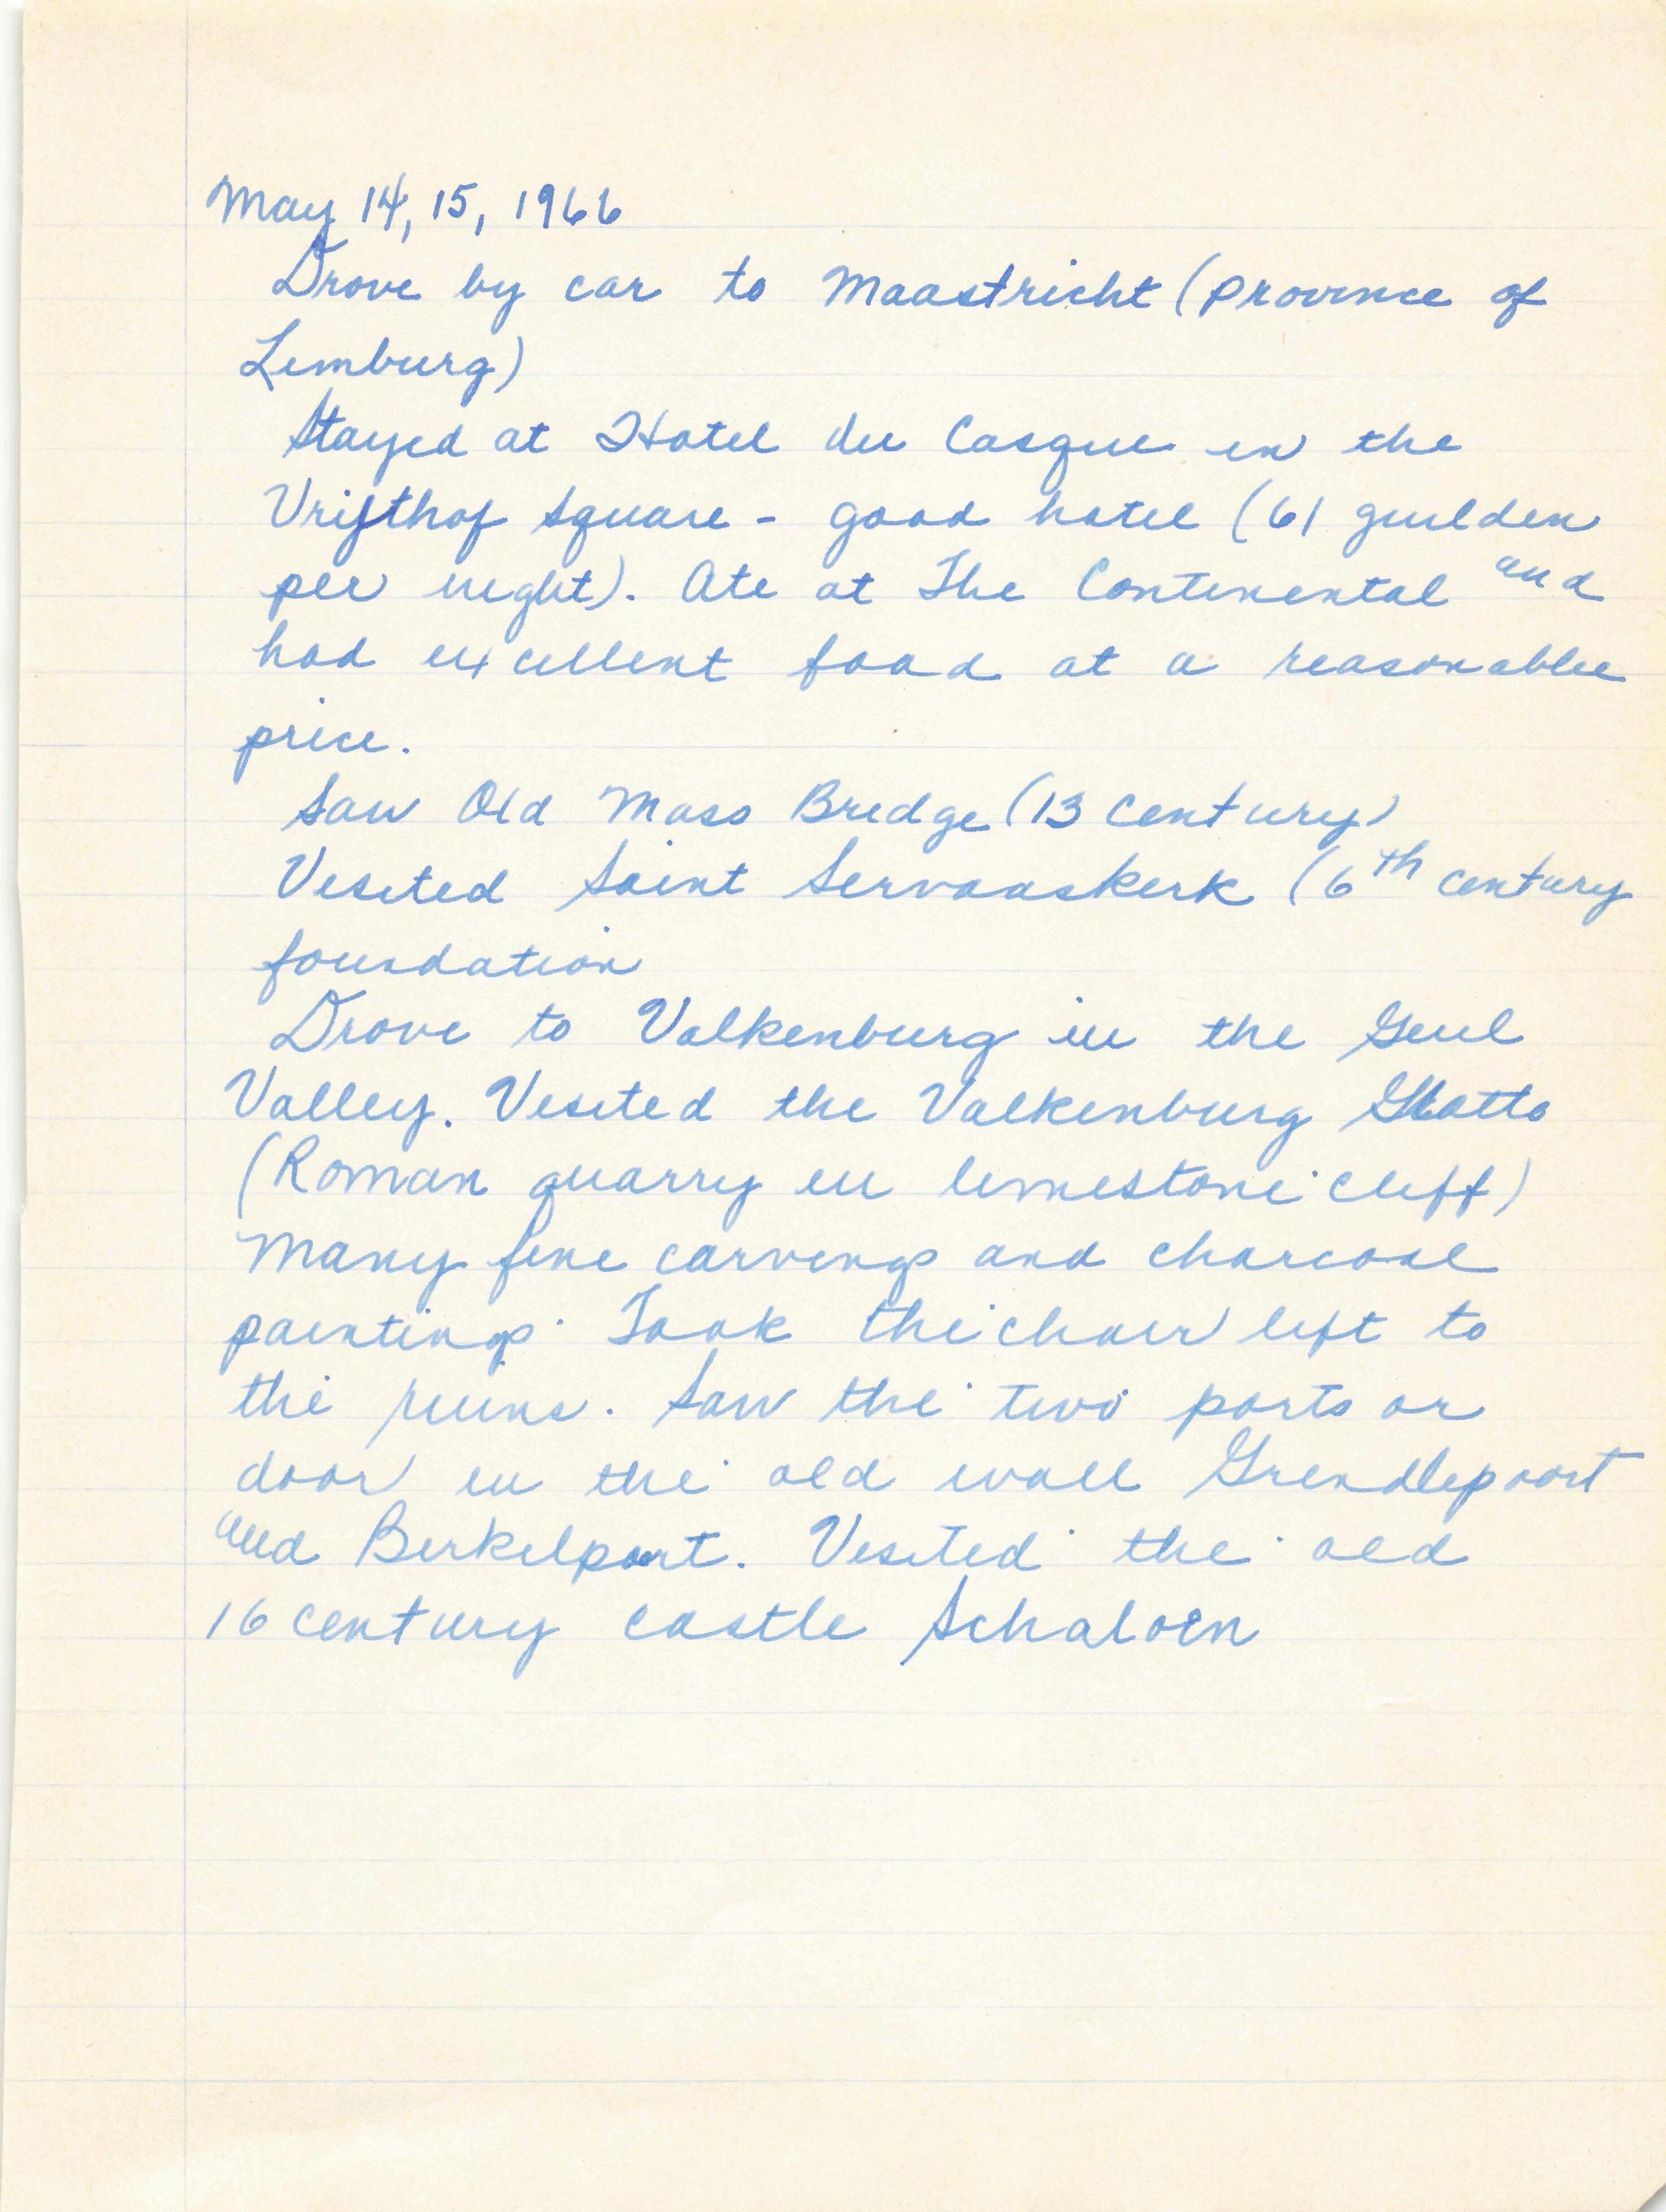 May 14, 15, 1966
Drove by car to Maastricht (Province of
Limburg)
Stayed at Hotel du Casque in the
Vrijthof square - good hotel (61 guilden
per night). Ate at The Continental and
had excellent food at a reasonable
price.
Saw Old Mass Bridge (13 century)
Visited Saint Servaaskerk (6th century
foundation
Drove to Valkenburg in the Geul
Valley. Visited the Valkenburg Grotto
(Roman quarry in limestone cliff)
Many fine carvings and charcoal
paintings. Took the chair lift to
the ruins. Saw the two ports or
door in the old wall Grendlepoort
and Berkelpoort. Visited the old
16 century castle Schaloen